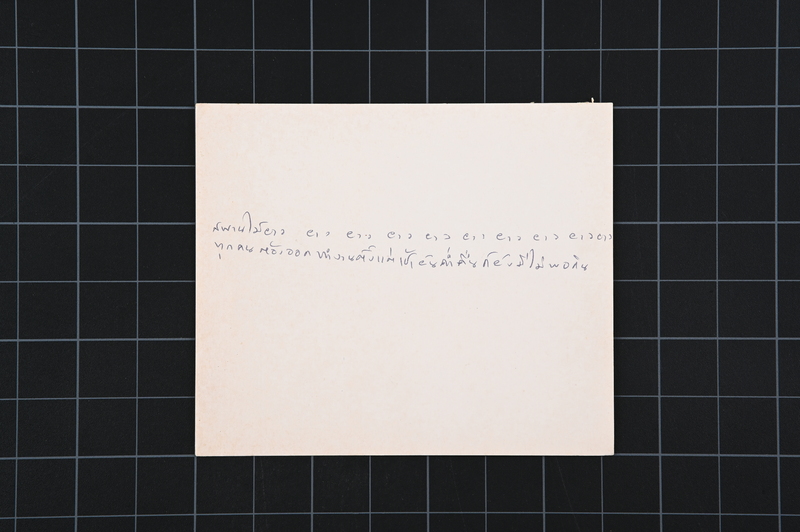 สะพานไม้ยาว ยาว ยาว ยาว ยาว ยาว ยาว ยาว ยาวยาว
ทุกคนต้องออกทำงานตั้งแต่เช้ายันค่ำคืนก็ยังมีไม่พอกิน